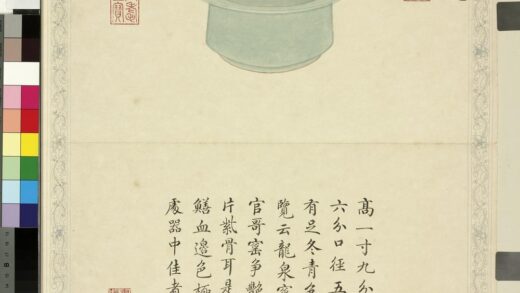 高一寸九分
六分口徑五
有足冬青色
覽云龍泉窑
官哥窑争艷
片紫骨耳是
鱔血邊色極
處器中佳者